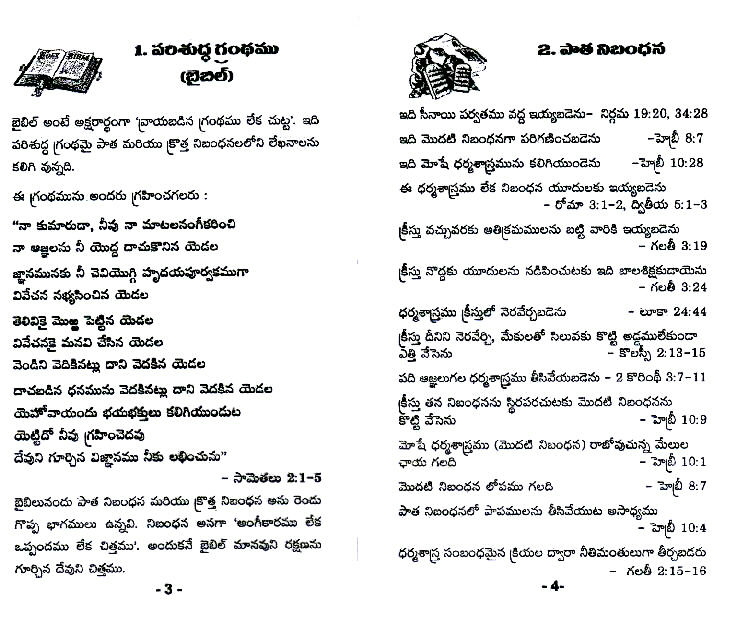 1. పరిశుద్ధ గ్రంథము
(బైబిల్)
బైబిల్ అంటే అక్షరార్థంగా 'వ్రాయబడిన గ్రంథము లేక చుట్ట'. ఇది
పరిశుద్ధ గ్రంథమై పాత మరియు క్రొత్త నిబంధనలలోని లేఖనాలను
కలిగి వున్నది.
ఈ గ్రంథమును అందరు గ్రహించగలరు :
"నా కుమారుడా, నీవు నా మాటలనంగీకరించి
నా ఆజ్ఞలను నీ యొద్ద దాచుకొనిన యెడల
జ్ఞానమునకు నీ చెవియొగ్గి హృదయపూర్వకముగా
వివేచన నభ్యసించిన యెడల
తెలివికై మొఱ్ఱ పెట్టిన యెడల
వివేచనకై మనవి చేసిన యెడల
వెండిని వెదికినట్లు దాని వెదకిన యెడల
దాచబడిన ధనమును వెదకినట్లు దాని వెదకిన యెడల
యెహోవాయందు భయభక్తులు కలిగియుండుట
యెట్టిదో నీవు గ్రహించెదవు
దేవుని గూర్చిన విజ్ఞానము నీకు లభించును"
- సామెతలు 2:1-5
బైబిలునందు పాత నిబంధన మరియు క్రొత్త నిబంధన అను రెండు
గొప్ప భాగములు ఉన్నవి. నిబంధన అనగా 'అంగీకారము లేక
ఒప్పందము లేక చిత్తము'. అందుకనే బైబిల్ మానవుని రక్షణను
గూర్చిన దేవుని చిత్తము.
- 3 -
2. పాత నిబంధన
ఇది సీనాయి పర్వతము వద్ద ఇయ్యబడెను- నిర్గమ 19:20, 34:28
ఇది మొదటి నిబంధనగా పరిగణించబడెను -హెబ్రీ 8:7
ఇది మోషే ధర్మశాస్త్రమును కలిగియుండెను -హెబ్రీ 10:28
ఈ ధర్మశాస్త్రము లేక నిబంధన యూదులకు ఇయ్యబడెను
- రోమా 3:1-2, ద్వితీయ 5:1-3
క్రీస్తు వచ్చువరకు అతిక్రమములను బట్టి వారికి ఇయ్యబడెను
- గలతీ 3:19
క్రీస్తు నొద్దకు యూదులను నడిపించుటకు ఇది బాలశిక్షకుడాయెను
- గలతీ 3:24
ధర్మశాస్త్రము క్రీస్తులో నెరవేర్చబడెను - లూకా 24:44
క్రీస్తు దీనిని నెరవేర్చి, మేకులతో సిలువకు కొట్టి అడ్డములేకుండా
ఎత్తి వేసెను - కొలస్సీ 2:13-15
పది ఆజ్ఞలుగల ధర్మశాస్త్రము తీసివేయబడెను - 2 కొరింథీ 3:7-11
క్రీస్తు తన నిబంధనను స్థిరపరచుటకు మొదటి నిబంధనను
కొట్టి వేసెను - హెబ్రీ 10:9
మోషే ధర్మశాస్త్రము (మొదటి నిబంధన) రాబోవుచున్న మేలుల
ఛాయ గలది - హెబ్రీ 10:1
మొదటి నిబంధన లోపము గలది - హెబ్రీ 8:7
పాత నిబంధనలో పాపములను తీసివేయుట అసాధ్యము
- హెబ్రీ 10:4
ధర్మశాస్త్ర సంబంధమైన క్రియల ద్వారా నీతిమంతులుగా తీర్చబడరు
- గలతీ 2:15-16
-4-